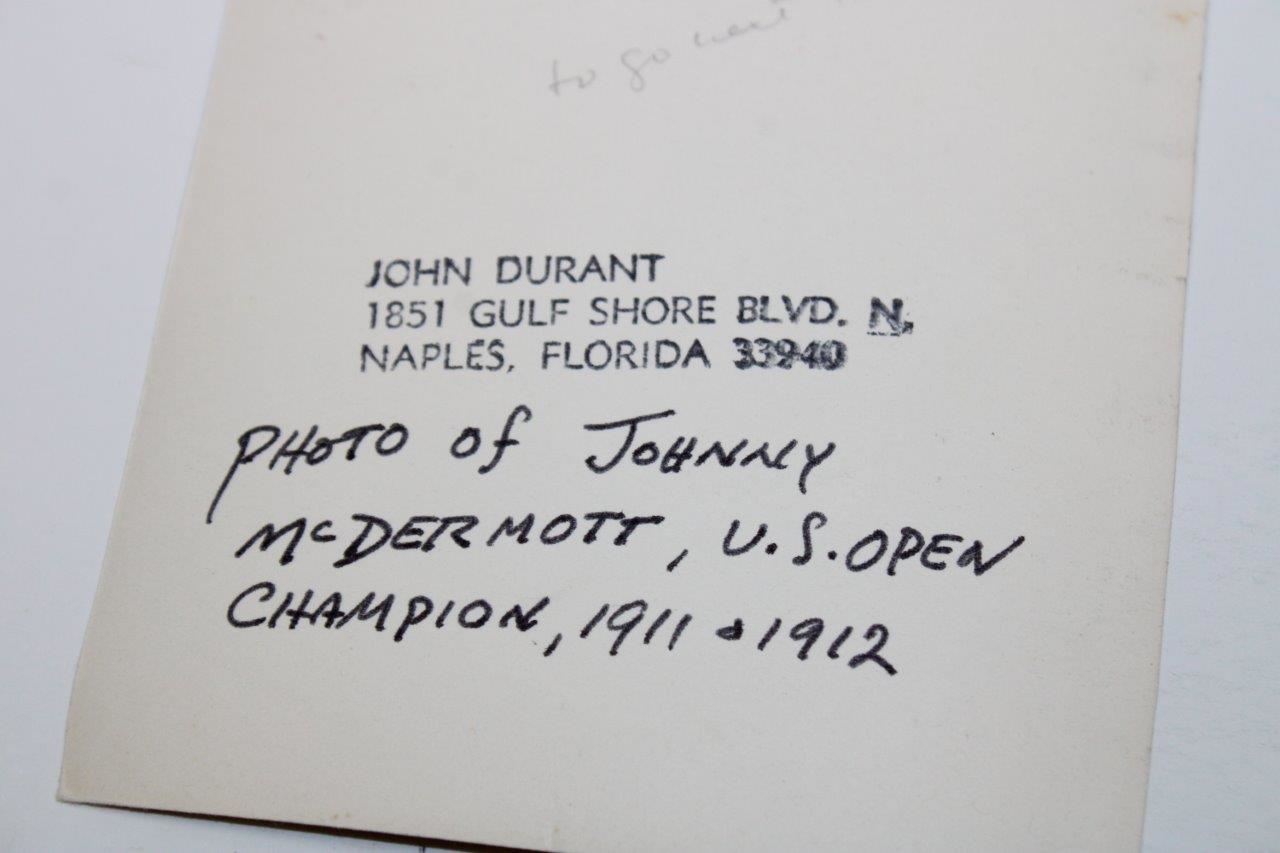 to go next
JOHN DURANT
1851 GULF SHORE BLVD. N.
NAPLES, FLORIDA 33940
PHOTO of JOHNNY
McDERMOTT, U.S. OPEN
CHAMPION, 1911 & 1912